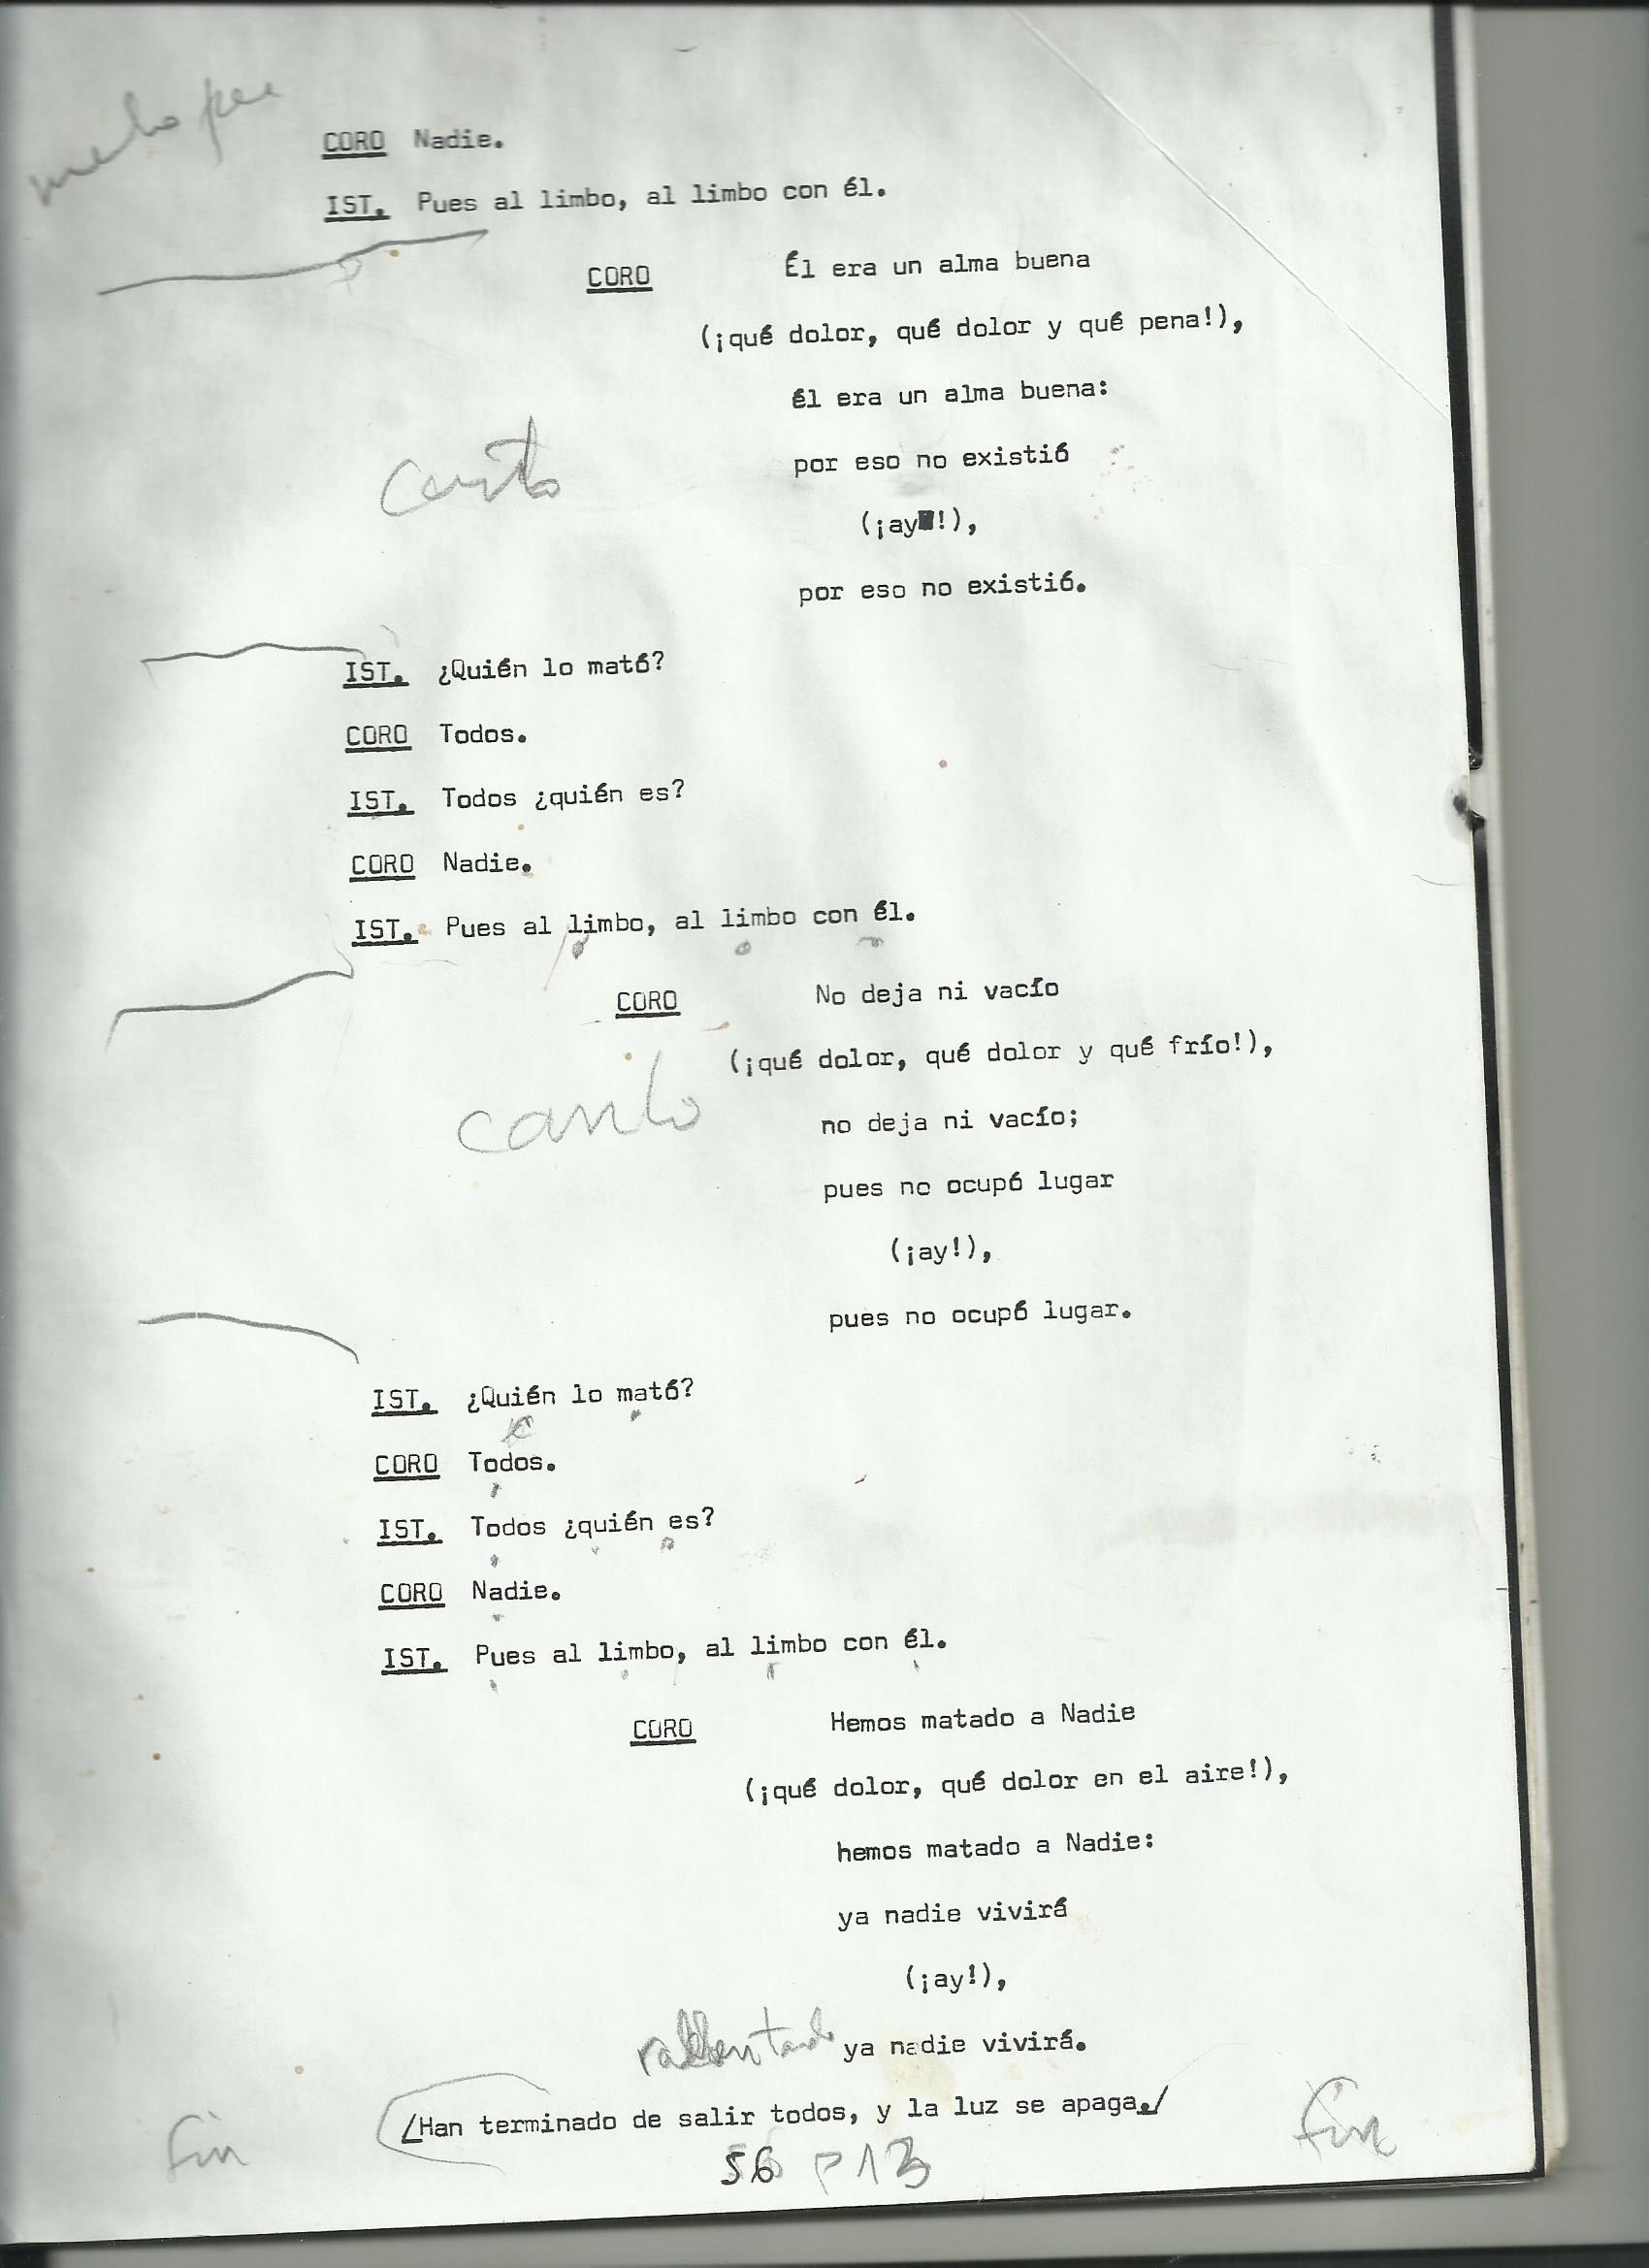 CORO Nadie.
IST. Pues al limbo, al limbo con él.
CORO Él era un alma buena
(¡qué dolor, qué dolor y qué pena!),
él era un alma buena:
canto
por eso no existió
(¡ay!),
por eso no existió.
IST. ¿Quién lo mató?
CORO Todos.
IST. Todos ¿quién es?
CORO Nadie.
IST. Pues al limbo, al limbo con él.
CORO No deja ni vacío
(¡qué dolor, qué dolor y qué frío!),
canto
no deja ni vacío;
pues no ocupó lugar
(¡ay!),
pues no ocupó lugar.
IST. ¿Quién lo mató?
CORO Todos.
IST. Todos ¿quién es?
CORO Nadie.
IST. Pues al limbo, al limbo con él.
CORO Hemos matado a Nadie
(¡qué dolor, qué dolor en el aire!),
hemos matado a Nadie:
ya nadie vivirá
(¡ay!),
rallentando ya nadie vivirá.
/Han terminado de salir todos, y la luz se apaga./
fin 56 P13 fin